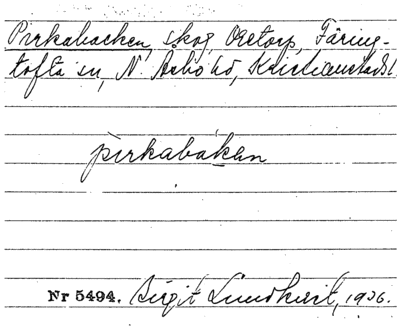 Pirkabacken, skog, Oretorp, Färing-
tofta sn, N. Åsbo hd, Kristianstads l
pirkabákan
Nr 5494. Birgit Lindkvist, 1936.